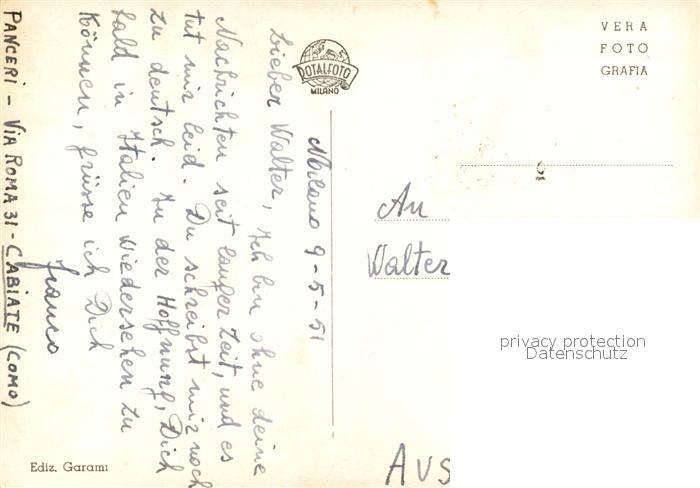 Milano 9-5-51
Lieber Walter, Ich bin ohne deine
Nachrichten seit langer Zeit, und es
tut mir leid. Du schreibst mir noch
zu deutsch. In der Hoffnung, Dich
bald in Italien wiedersehen zu
können, grüsse ich Dich
Franco
PANCERI - VIA ROMA 31 - CABIATE (COMO)
ROTALFOTO
MILANO
VERA
FOTO
GRAFIA
An
Walter
privacy protection
Datenschutz
AUS
Ediz. Garami